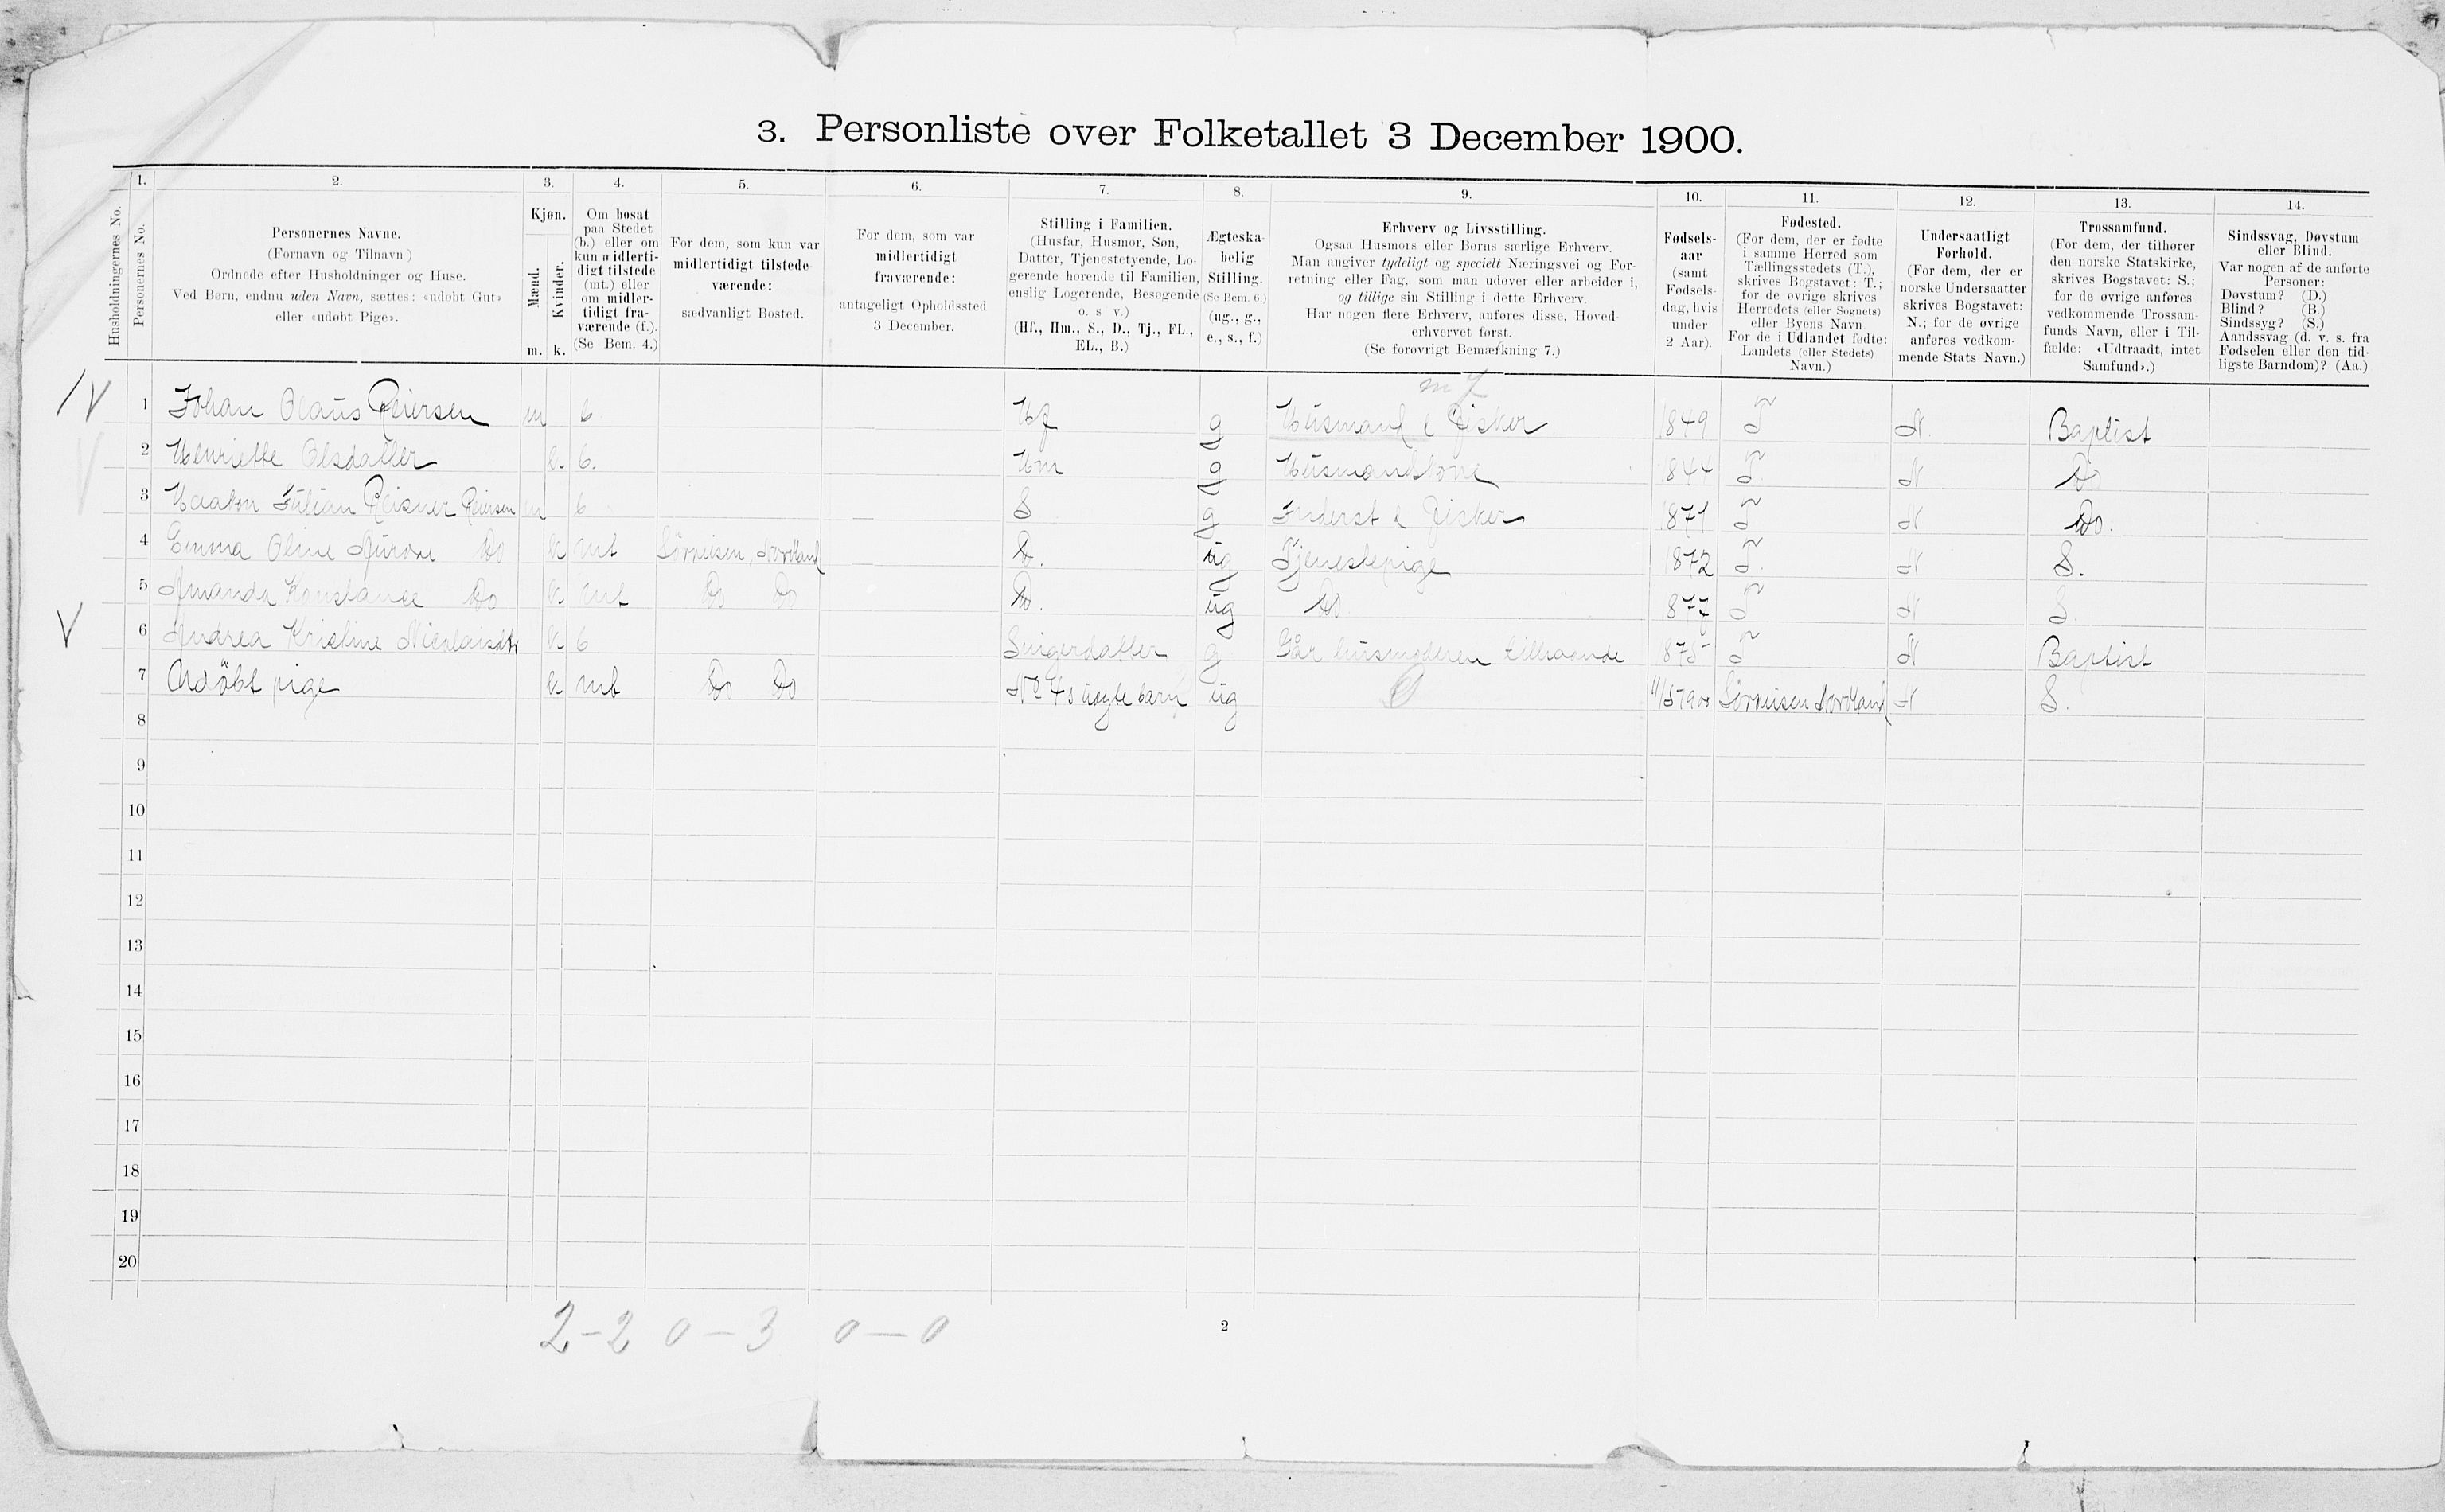 3. Personliste over Folketallet 3 December 1900.
1. 2. 3. 4. 5. 6. 7. 8. 9. 10. 11. 12. 13. 14.
Husholdningernes No.
Personernes No.
Personernes Navne.
(Fornavn og Tilnavn)
Ordnede efter Husholdninger og Huse.
Ved Børn, endnu uden Navn, sættes: «udøbt Gut»
eller «udøbt Pige».
Kjøn.
Mænd.
Kvinder.
m. k.
Om bosat
paa Stedet
(b.) eller om
kun midlerti-
digt tilstede
(mt.) eller
om midler-
tidigt fra-
værende (f.).
(Se Bem. 4.)
For dem, som kun var
midlertidigt tilstede-
værende:
sædvanligt Bosted.
For dem, som var
midlertidigt
fraværende:
antageligt Opholdssted
3 December.
Stilling i Familien.
(Husfar, Husmor, Søn,
Datter, Tjenestetyende, Lo-
gerende hørende til Familien,
enslig Logerende, Besøgende
o. s v.)
(Hf., Hm., S., D., Tj., FL.,
EL., B.)
Ægteska-
belig
Stilling.
(Se Bem. 6.)
(ug., g.,
e., s., f.)
Erhverv og Livsstilling.
Ogsaa Husmors eller Børns særlige Erhverv.
Man angiver tydeligt og specielt Næringsvei og For-
retning eller Fag, som man udøver eller arbeider i,
og tillige sin Stilling i dette Erhverv.
Har nogen flere Erhverv, anføres disse, Hoved-
erhvervet først.
(Se forøvrigt Bemærkning 7.)
Fødsels-
aar
(samt
Fødsels-
dag, hvis
under
2 Aar).
Fødested.
(For dem, der er fødte
i samme Herred som
Tællingsstedets (T.),
skrives Bogstavet: T.;
for de øvrige skrives
Herredets (eller Sognets)
eller Byens Navn.
For de i Udlandet fødte:
Landets (eller Stedets)
Navn.)
Undersaatligt
Forhold.
(For dem, der er
norske Undersaatter
skrives Bogstavet:
N.; for de øvrige
anføres vedkom-
mende Stats Navn.)
Trossamfund.
(For dem, der tilhører
den norske Statskirke,
skrives Bogstavet: S.;
for de øvrige anføres
vedkommende Trossam-
funds Navn, eller i Til-
fælde: «Udtraadt, intet
Samfund».)
Sindssvag, Døvstum
eller Blind.
Var nogen af de anførte
Personer:
Døvstum? (D.)
Blind? (B.)
Sindssyg? (S.)
Aandssvag (d. v. s. fra
Fødselen eller den tid-
ligste Barndom)? (Aa.)
m f
1 Johan Olaus Reiersen m b Hf g Husmand & Fisker 1849 T N Baptist
2 Henriette Olsdatter k b. Hm g Husmandskone 1844 T. N Do
3 Haakon Julian Reisner Reiersen m b S g Inderst & Fisker 1871 T N Do.
4 Emma Oline Aurore Do k mt Sörreisen, Nordland D. ug Tjenestepige 1872 T. N S.
5 Amanda Konstanse Do k mt Do Do D. ug Do 1877 T N S.
6 Andrea Kristine Nicolaisdtr k b Svigerdatter g Går husmoderen tilhaande 1875 T N Baptist
7 Udöbt pige k mt Do Do No 4s uægte barn ug 11/5 1900 Sörreisen Nordland N S.
8
9
10
11
12
13
14
15
16
17
18
19
20
2-2 0-3 0-0
2